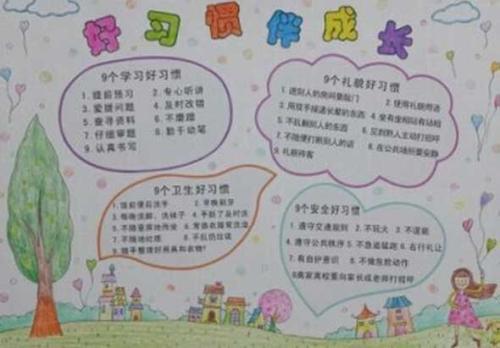 好习惯伴成长
9个学习好习惯
1. 提前预习 2. 专心听讲
3. 爱提问题 4. 及时改错
5. 查寻资料 6. 不磨蹭
7. 仔细审题 8. 勤于动笔
9. 认真书写
9个礼貌好习惯
1. 进别人的房间要敲门 2. 使用礼貌用语
3. 用双手接递长辈的东西 4. 坐有坐相站有站相
5. 不乱翻别人的东西 6. 见到熟人主动打招呼
7. 不随便打断别人的话 8. 在公共场所要安静
9. 礼貌待客
9个卫生好习惯
1. 饭前便后洗手 2. 早晚刷牙
3. 每晚洗脚、洗袜子 4. 手脏了及时洗
5. 不随意席地而坐 6. 常换衣服常洗澡
7. 不随地吐痰 8. 不乱扔垃圾
9. 随手整理好用具和衣物!
9个安全好习惯
1. 遵守交通规则 2. 不玩火 3. 不湿船
4. 遵守公共秩序 5. 不急追猛跑 6. 右行礼让
7. 有自护意识 8. 不做危险动作
9离家离校要向家长或老师打招呼